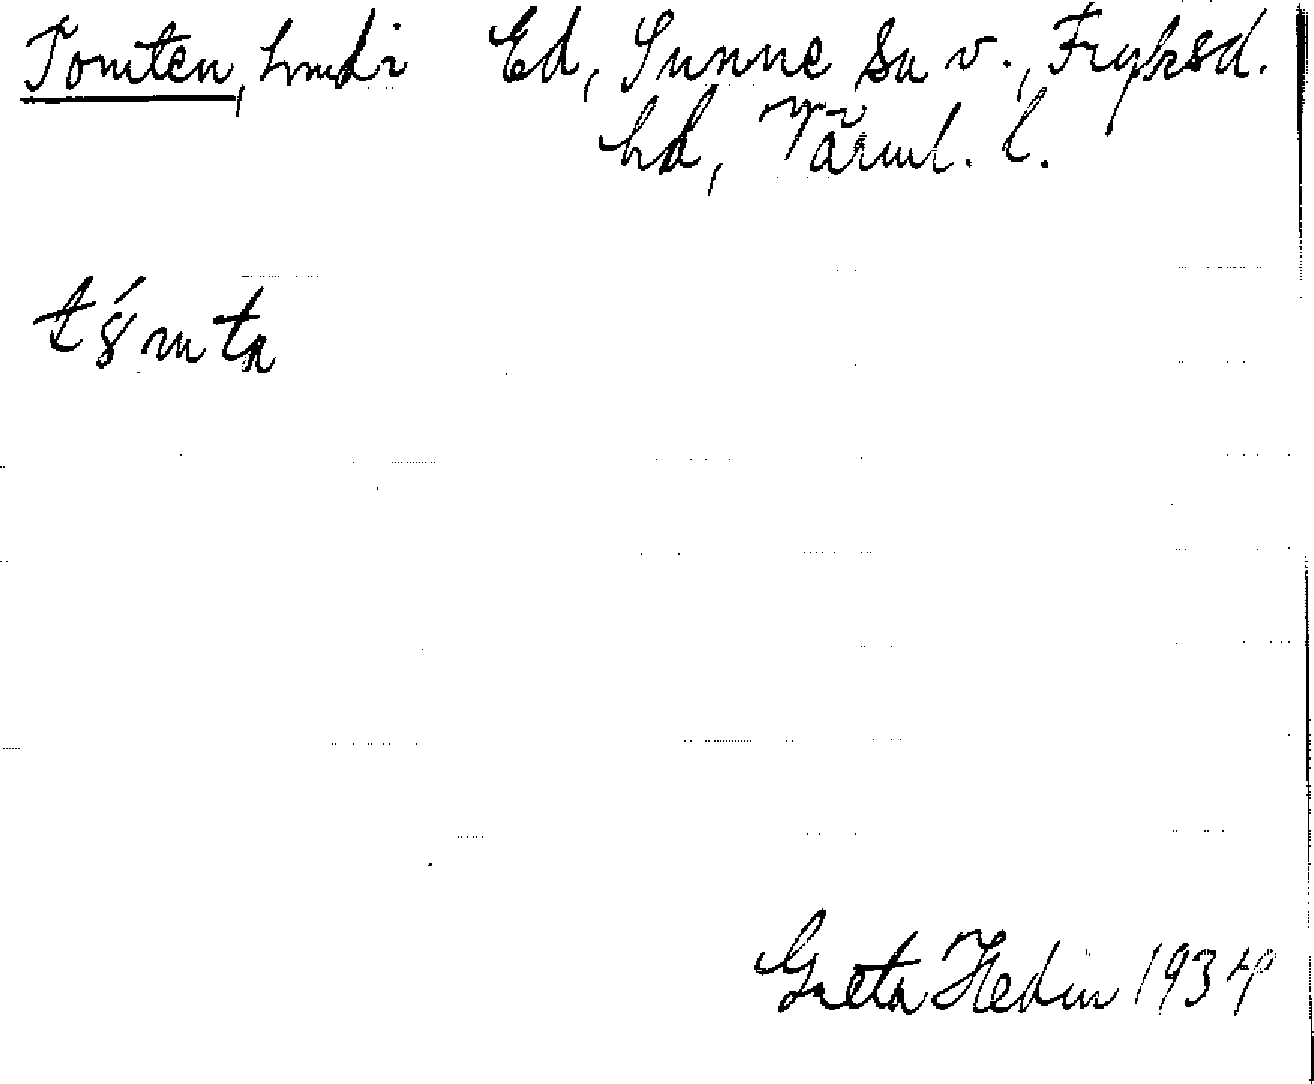 Tomten, hmdr Ed, Sunne sn v., Fryksd.
hd, Värml. l.
Greta Hedin 1934